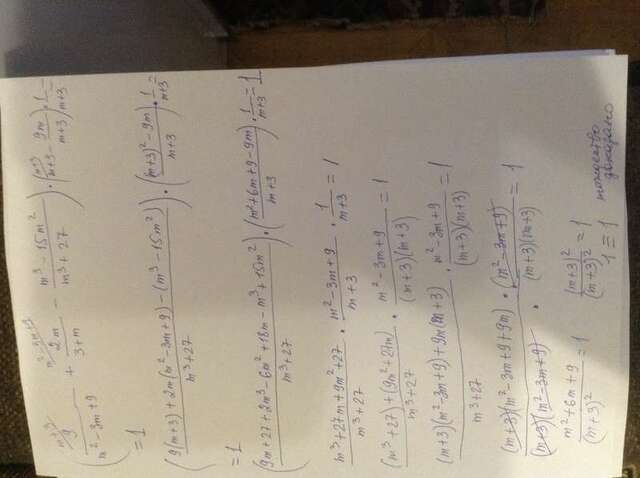 (9/(m²-3m+9) + 2m/(3+m) - (m³-15m²)/(m³+27)) · (m+3 - 9m/(m+3)) · 1/(m+3) =
= 1
((9(m+3)+2m(m²-3m+9)-(m³-15m²))/(m³+27)) · (((m+3)²-9m)/(m+3)) · 1/(m+3) =
= 1
((9m+27+2m³-6m²+18m-m³+15m²)/(m³+27)) · ((m²+6m+9-9m)/(m+3)) · 1/(m+3) = 1
(m³+27m+9m²+27)/(m³+27) · (m²-3m+9)/(m+3) · 1/(m+3) = 1
((m³+27)+(9m²+27m))/(m³+27) · (m²-3m+9)/((m+3)(m+3)) = 1
((m+3)(m²-3m+9)+9m(m+3))/(m³+27) · (m²-3m+9)/((m+3)(m+3)) = 1
((m+3)(m²-3m+9+9m))/((m+3)(m²-3m+9)) · (m²-3m+9)/((m+3)(m+3)) = 1
(m²+6m+9)/(m+3)² = 1 (m+3)²/(m+3)² = 1
1 = 1 тождество
доказано